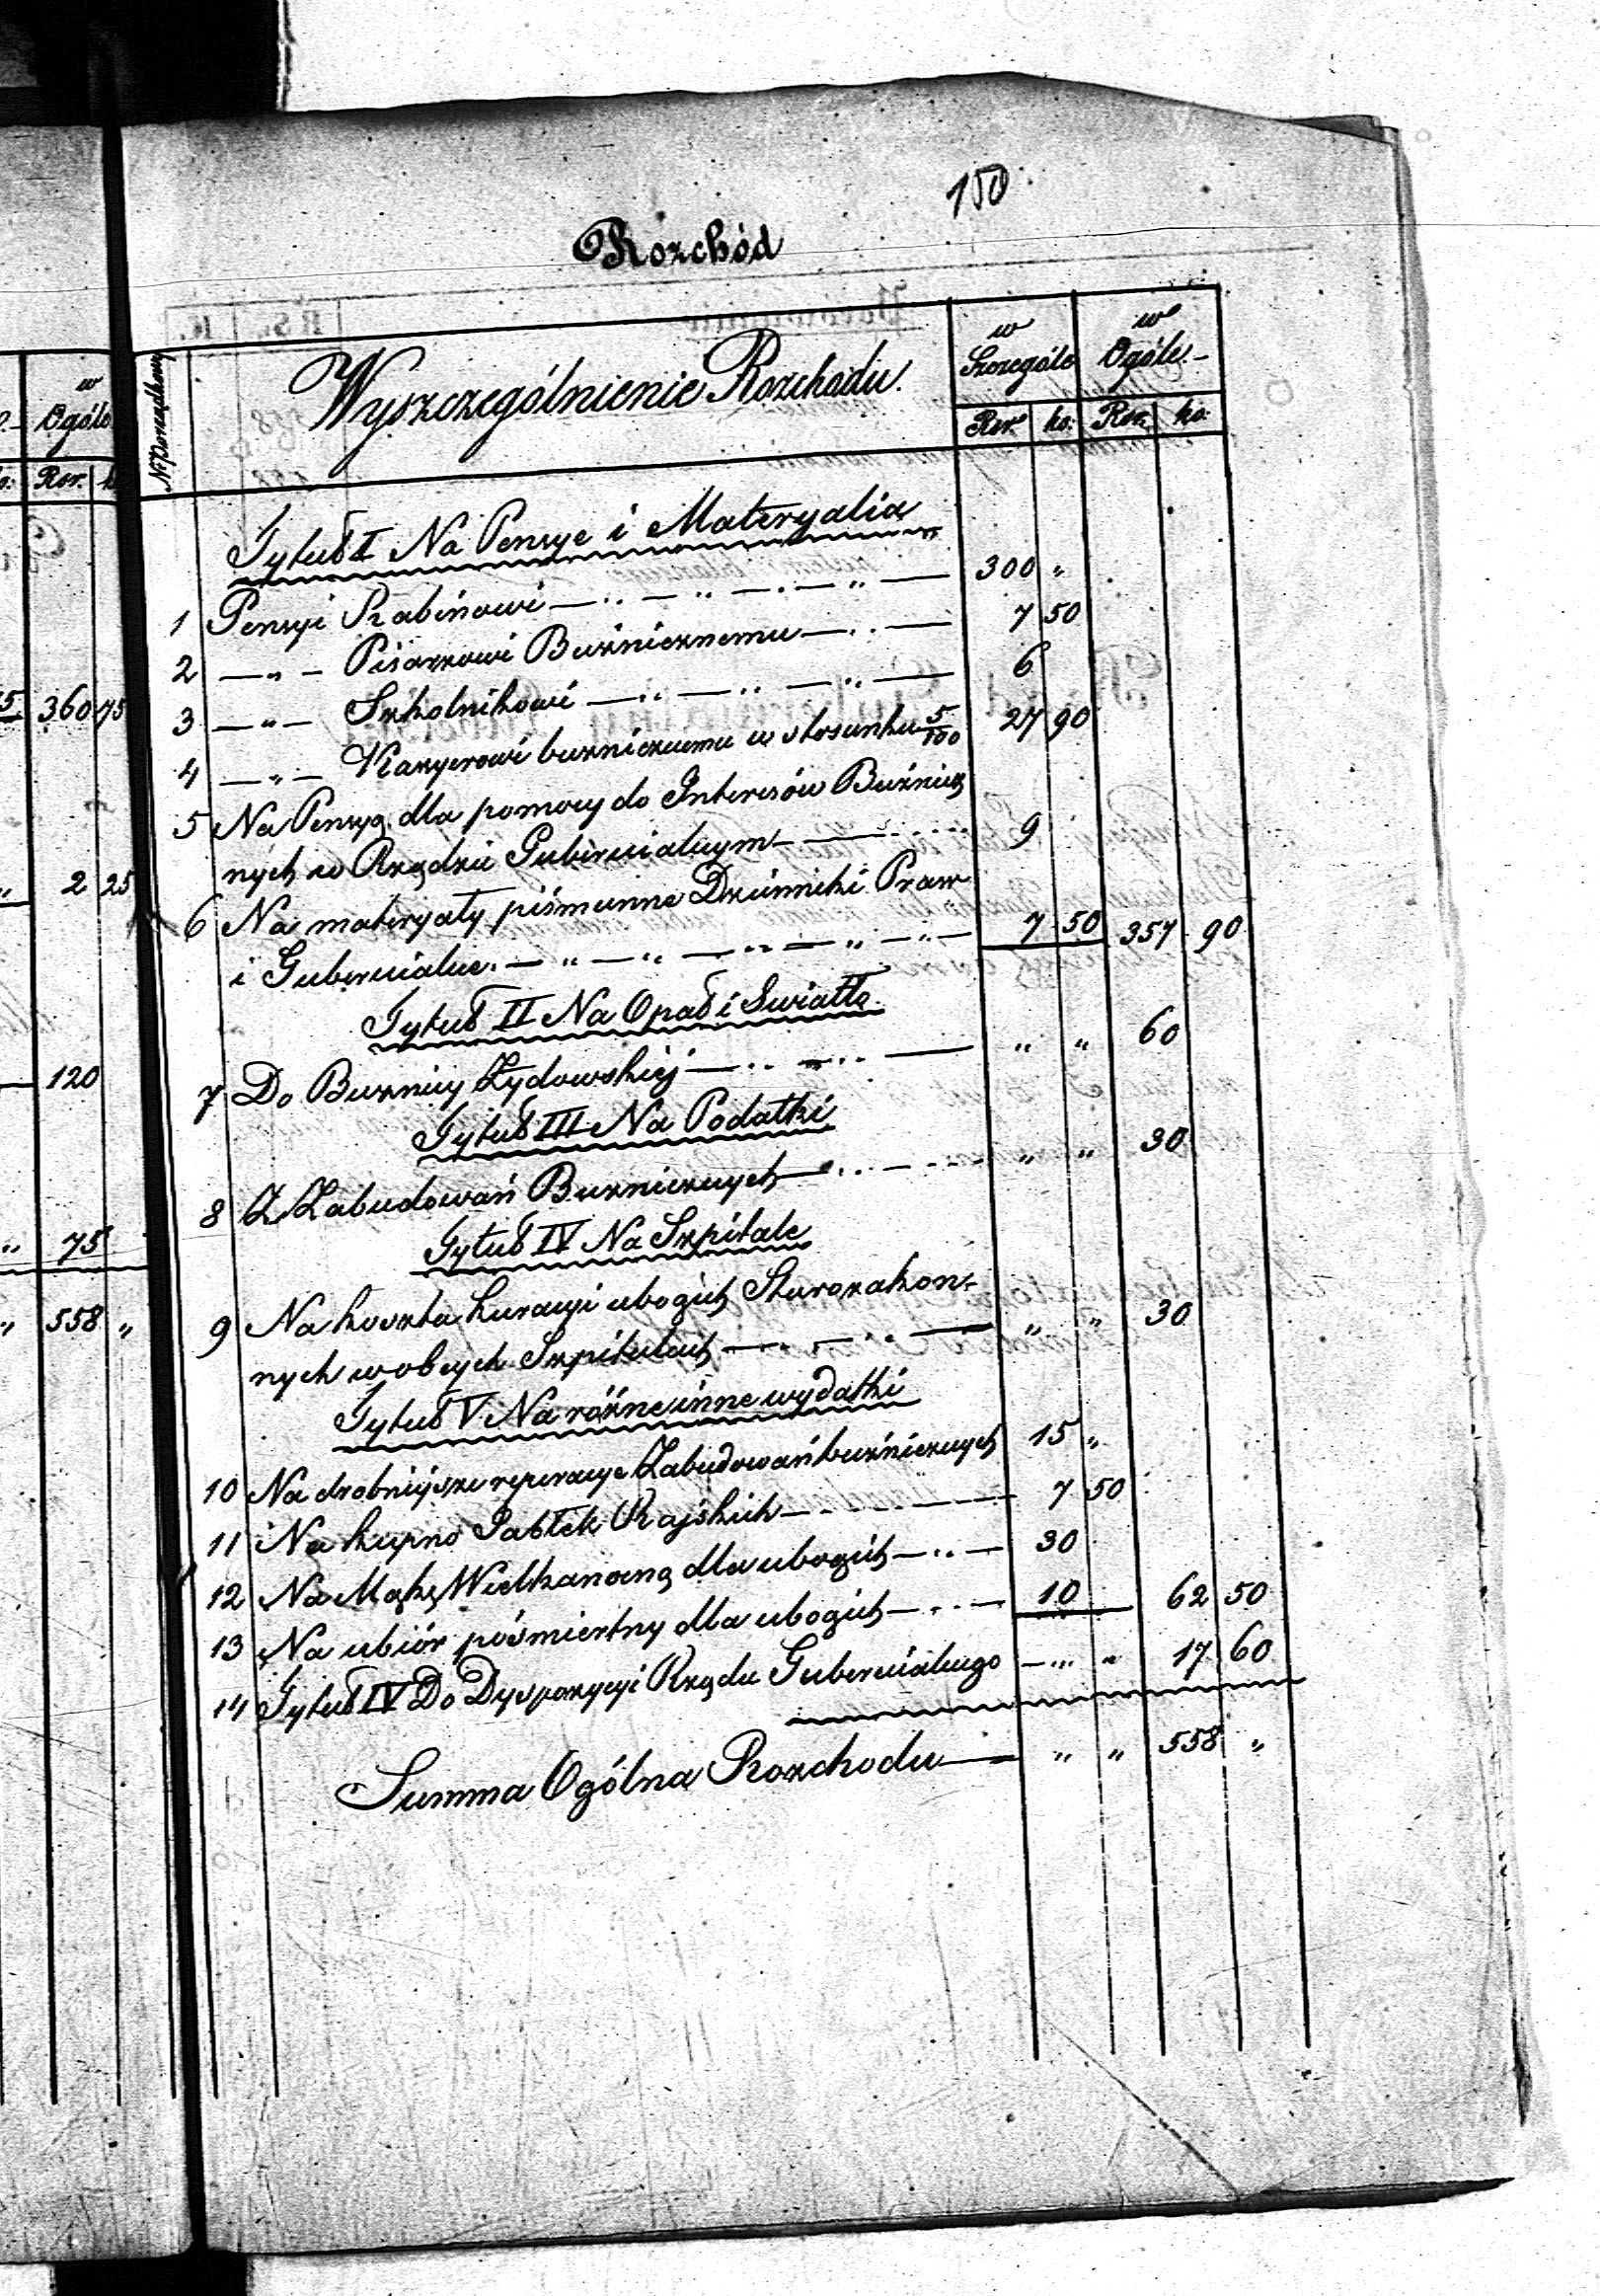 150
Rozchód
w Ogóle
Rsr. k
360 75
2 25
120
75
558 "
No Porządkowy
Wyszczególnienie Rozchodu.
w Szczególe
w Ogóle
Rsr. ko: Rsr. ko:
Tytuł I Na Pensye i Materyalia
1 Pensyi Rabinowi — " — " — " — " — 300 "
2 — " — Pisarzowi Bużnicznemu — " — 7 50
3 — " — Szkolnikowi — " — " — " — 6
4 — " — Kasyerowi bużnicznemu w stosunku 5/100 27 90
5 Na Pensyą dla pomocy do Interesów Bużnicz
nych w Rządzie Gubernialnym — 9
6 Na materyały piśmienne Dzienniki Praw
i Gubernialne. — " — " — " — " — " — 7 50 357 90
Tytuł II Na Opał i Swiatło
7 Do Buznicy Żydowskiej — " — " — " " 60
Tytuł III Na Podatki
8 Z Zabudowań Buznicznych — " " 30
Tytuł IV Na Szpitale
9 Na koszta kuracyi ubogich Starozakon-
nych w obcych Szpitalach — " " 30
Tytuł V Na różne inne wydatki
10 Na drobniejsze reperacye Zabudowań bużnicznych 15 "
11 Na kupno Jabłek Rajskich — 7 50
12 Na Mąkę Wielkanocną dla ubogich — " — 30
13 Na ubiór pośmiertny dla ubogich — " — 10 62 50
14 Tytuł IV Do Dyspozycyi Rządu Gubernialnego — " " 17 60
Summa Ogólna Rozchodu — " " 558 "